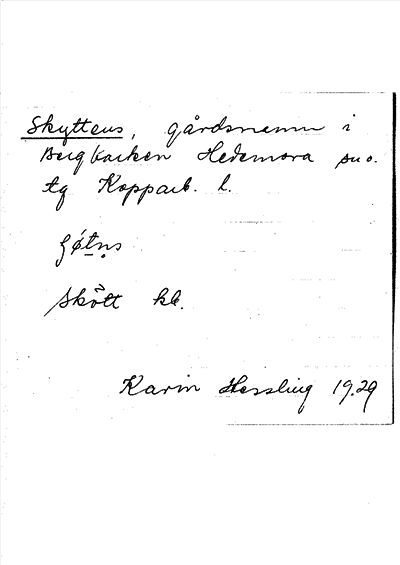 Skytteus, gårdsnamn i
Bergkarken Hedemora sn o.
tg Kopparb. l.
skött kb.
Karin Hessling 1929